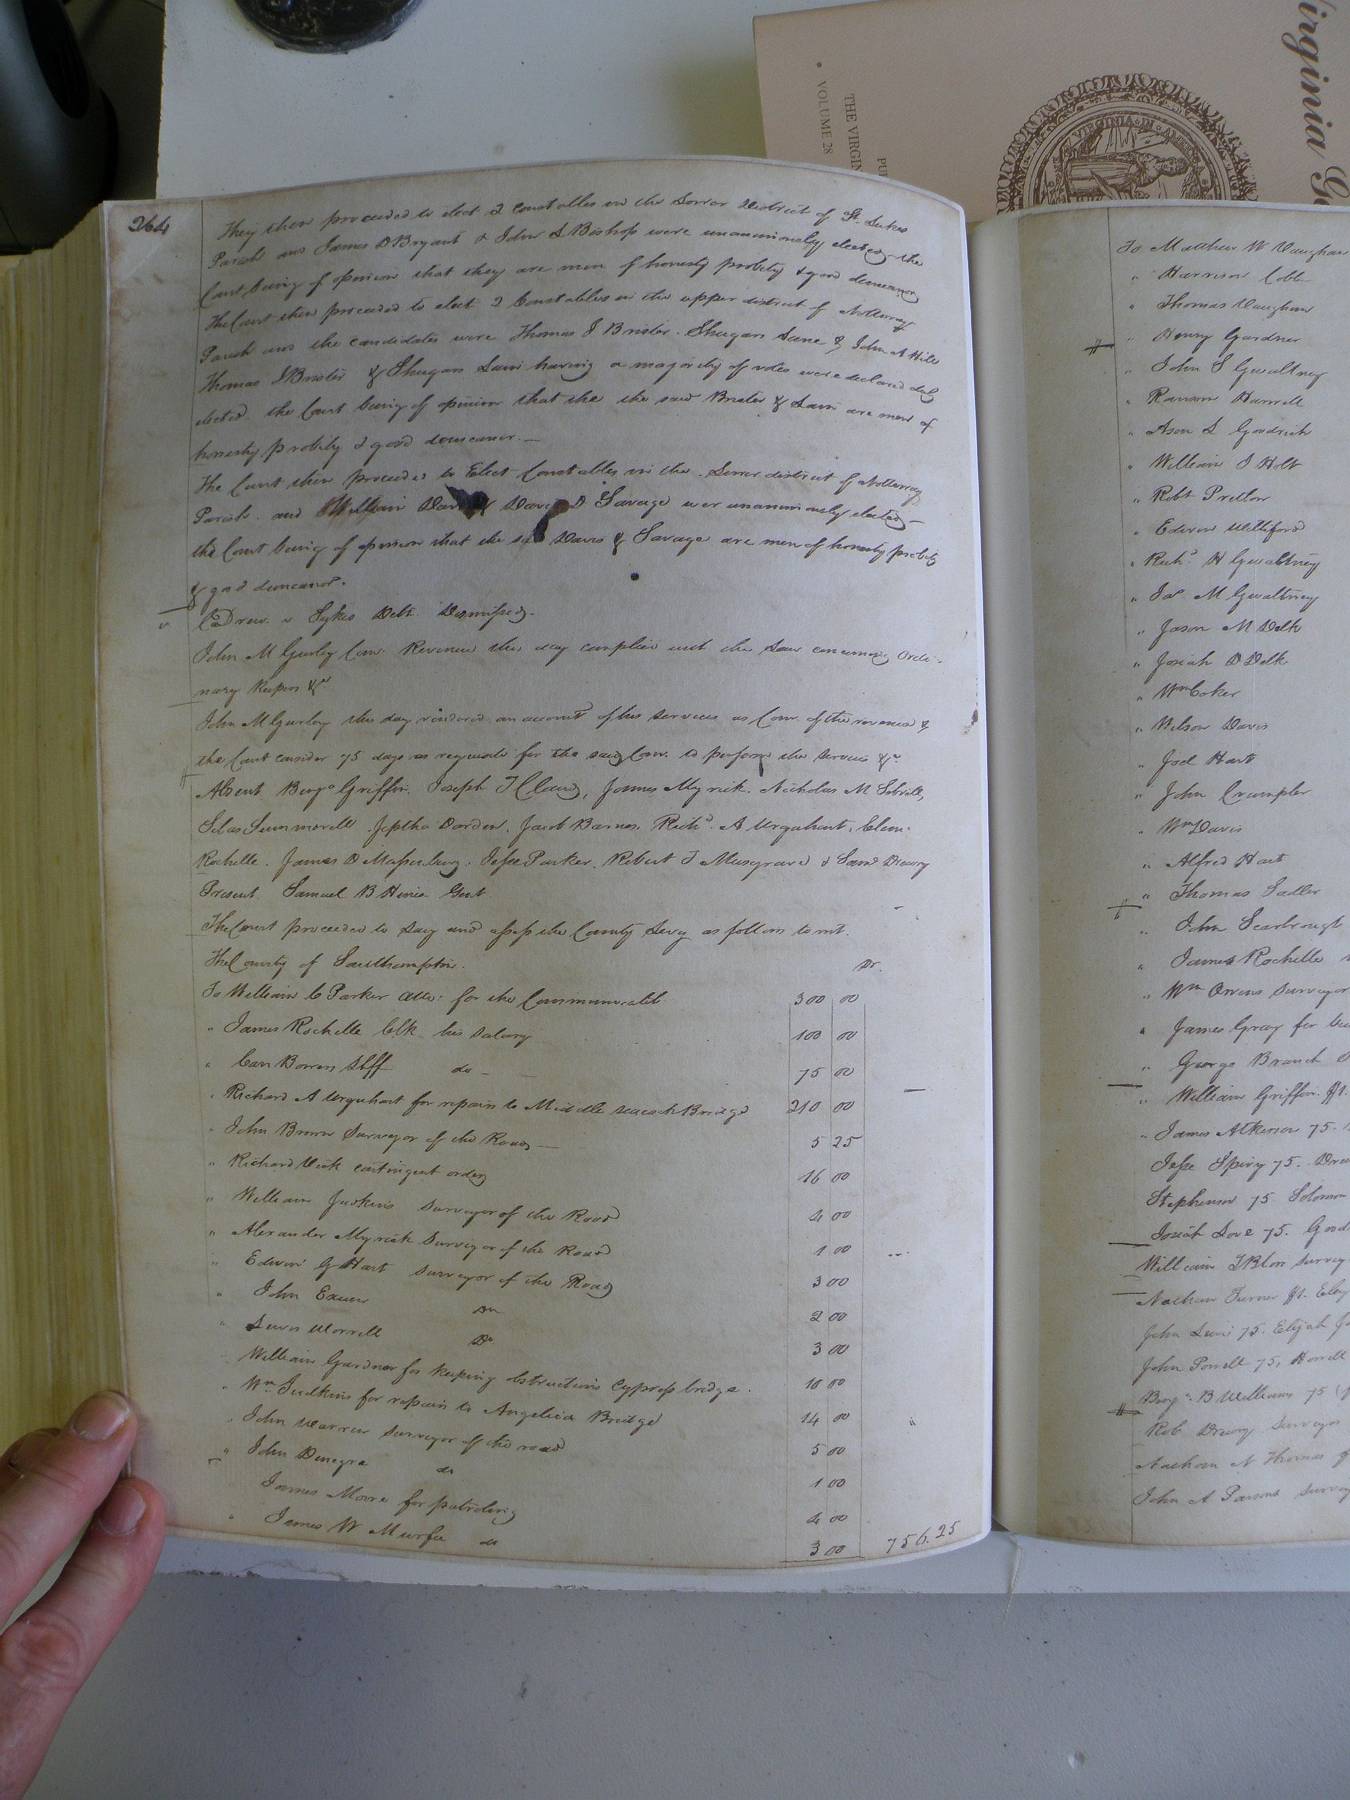 264
They then proceeded to elect 2 Constables in the Lower District of St. Lukes
Parish and James D Bryant & John S Bishop were unanimously elected the
Court being of opinion that they are men of honesty probity & good demeanor
The Court then proceeded to elect 2 Constables in the upper district of Nottoway
Parish and the candidates were Thomas J Brister. Shugars Lane & John A Hill
Thomas J Brister & Shugars Lain having a majority of votes were declared duly
elected. the Court being of opinion that the the said Brister & Lain are men of
honesty probity & good demeanor.
The Court then proceeded to Elect Constables in the Lower district of Nottoway
Parish. and William Davis & David D Savage wer unanimously elected
the Court being of opinion that the said Davis & Savage are men of honesty probity
& good demeanor.
Drew. v Sykes Debt Dismissed.
John M Gurley Com: Revenue this day complied with the Law concerning Ordi-
nary Keepers &c
John M Gurley this day rendered an account of his services as Com. of the revenue &
the Court consider 75 days as requisite for the said Com. to perform the services &c
Absent Benjn Griffin. Joseph T Claud, James Myrick. Nicholas M Sebrell,
Silas Summerell Jeptha Darden. Jacob Barnes. Richd. A Urquhart. Clem.
Rochelle. James D Massenburg. Jesse Parker. Robert T Musgrave & Saml Drewry
Present Samuel B Hines Gent
The Court proceeded to Lay and assess the County Levy as follows to wit.
The County of Southampton. Dr.
To William C Parker Atto: for the Commonwealth 300 00
" James Rochelle Clk his salary 100 00
" Carr Bowers Shff do 75 00
" Richard A Urquhart for repairs to Middle Bridge 210 00
" John Brown Surveyor of the Road 5 25
" Richard Vick contingent order 16 00
" William Judkins surveyor of the Road 4 00
" Alexander Myrick Surveyor of the Road 1 00
" Edwin G Hart surveyor of the Road 3 00
" John Exum Do 2 00
" Lewis Worrell Do 3 00
William Gardner for keeping obstructions Cypress bridge. 10 00
" Wm Judkins for repairs to Angelica Bridge 14 00
" John Warren surveyor of the road 5 00
" John Denegre do 1 00
James Moore for patroling 4 00
" James W Murfee do 3 00 756.25
To Matthew W Vaughan
" Harrison Cobb
" Thomas Vaughan
" Henry Gardner
" John S Gwaltney
" Ransom Harrell
" Ason L Goodrich
" William J Holt
" Robt Pretlow
" Edwin Williford
" Richd. H Gwaltney
" Jas M Gwaltney
" Jason M Delk
" Josiah D Delk
" Wm Coker
" Wilson Davis
" Joel Hart
" John Crumpler
" Wm Davis
" Alfred Hart
" Thomas Sadler
" John Scarbrough
" James Rochelle
" Wm Owens surveyor
" James Gray for
" George Branch
" William Griffin
" James Atkinson 75.
Jesse Spivy 75.
Stephenson 75 Solomon
Josiah Love 75.
William surveyor
Nathan Turner
John 75. Elijah
John Powell 75, Howell
Benjn. B Williams 75
Rob Drewry surveyor
Nathan N Thomas
John A Parsons surveyor
VOLUME 28
THE VIRGIN
PU
Virginia G
VIRGINIA